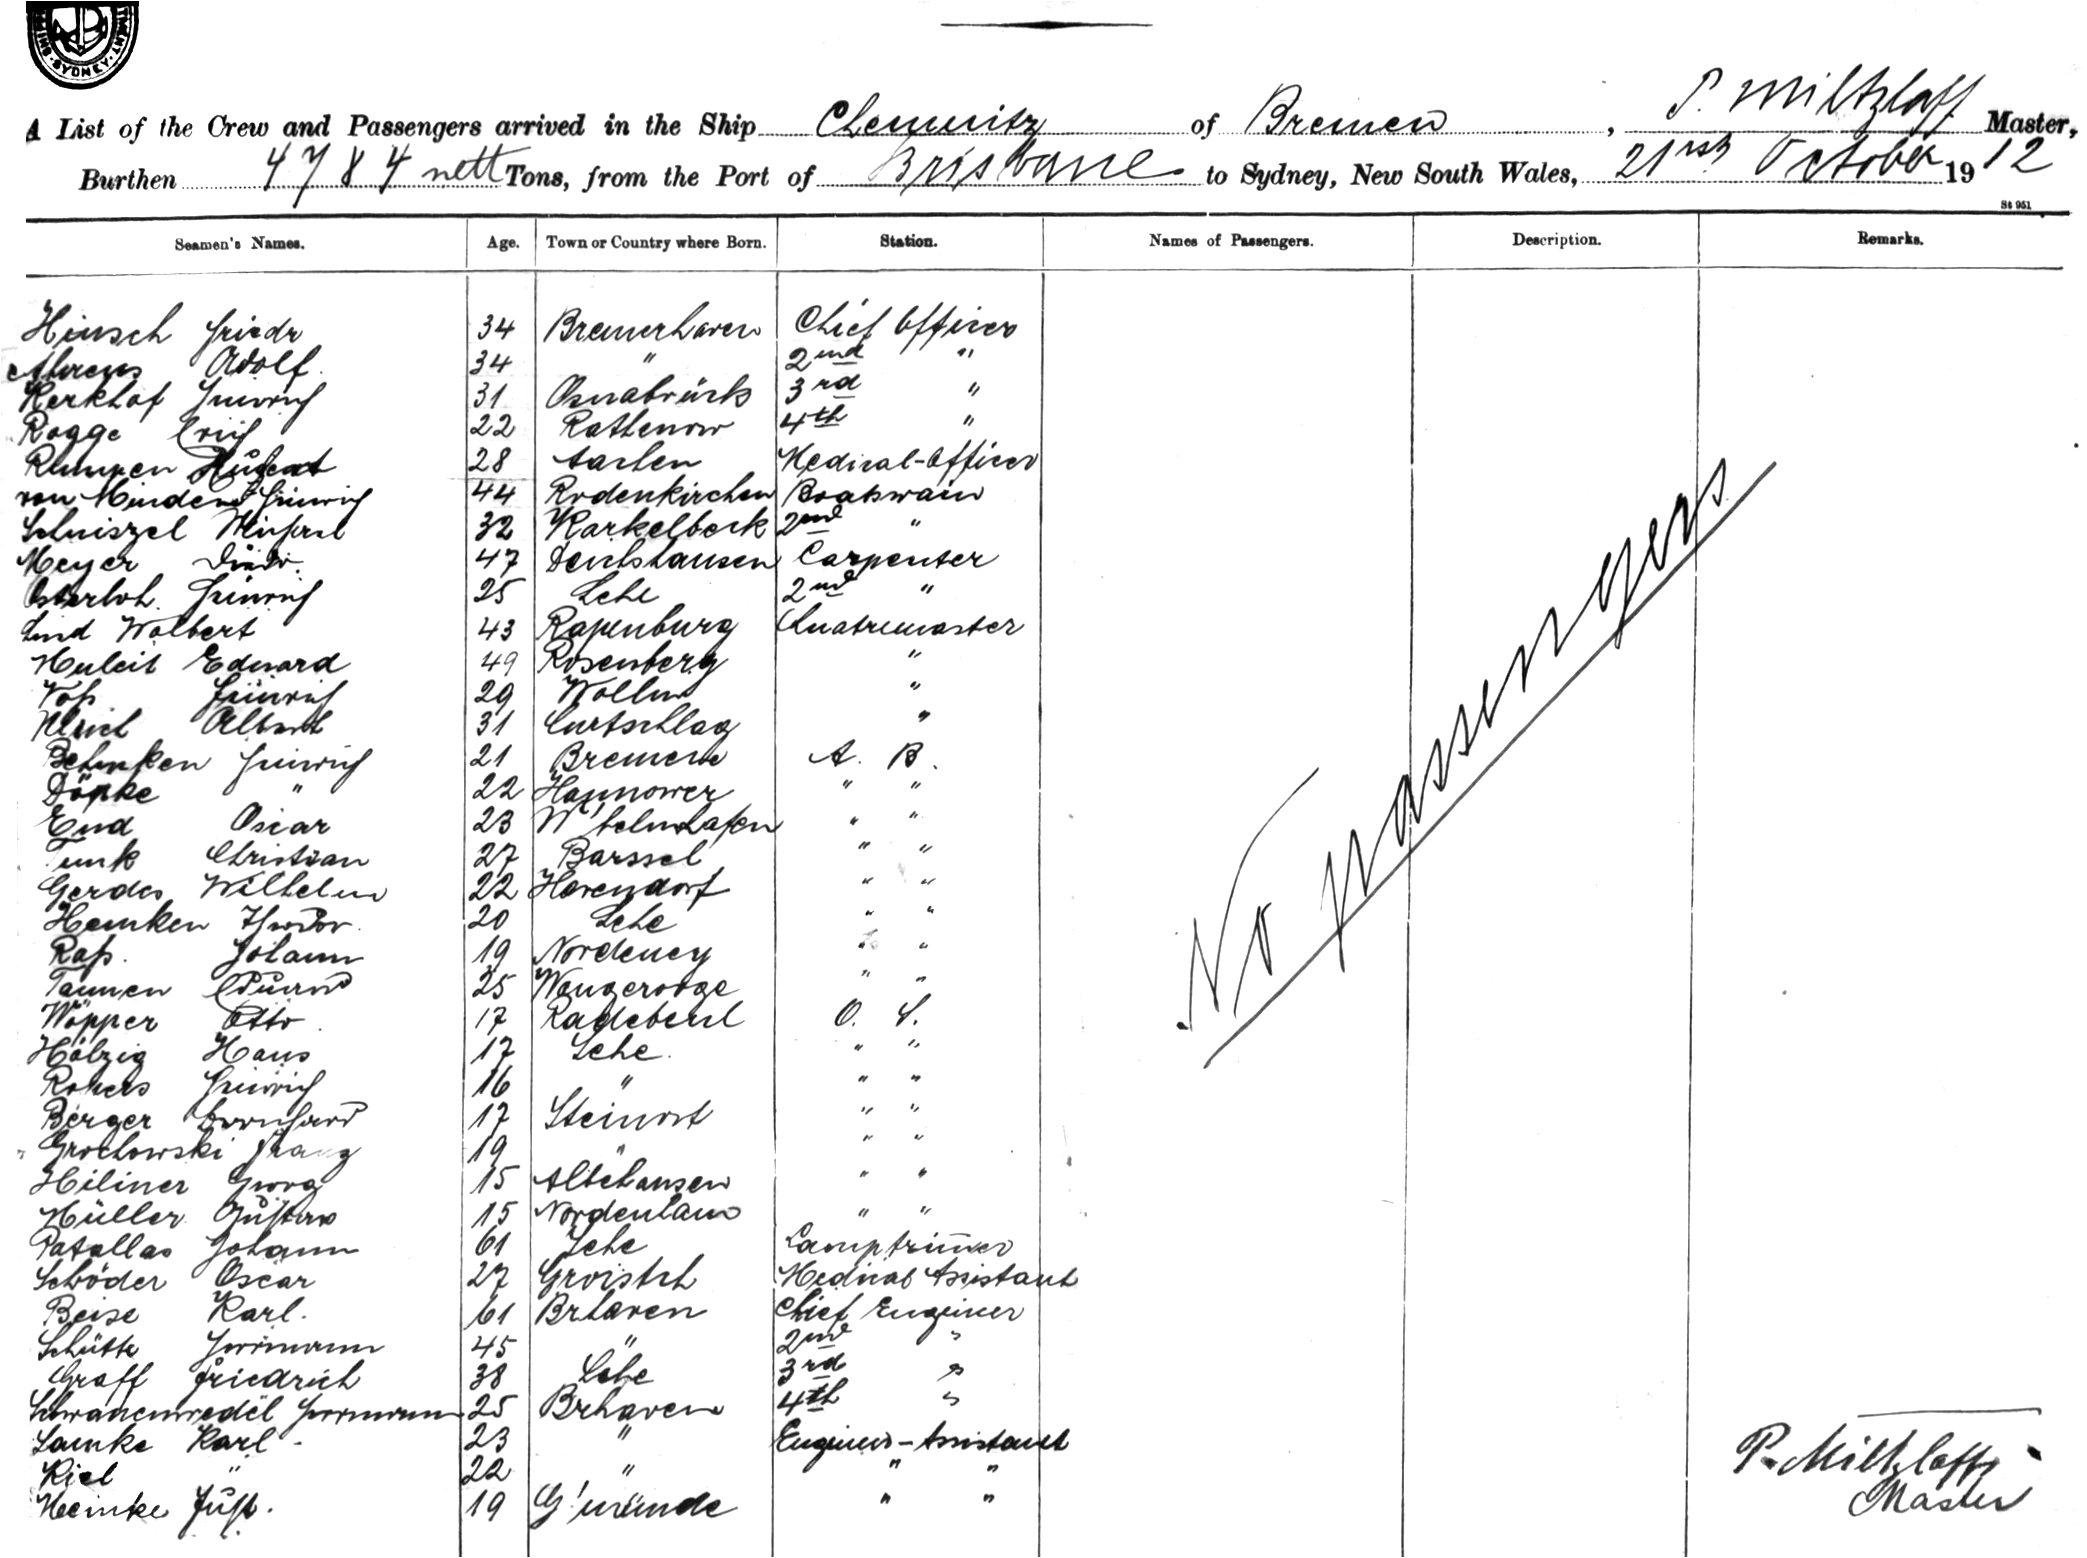 SYDNEY
A List of the Crew and Passengers arrived in the Ship Chemnitz of Bremen, P. Miltzlaff Master,
Burthen 4784 nett Tons, from the Port of Brisbane to Sydney, New South Wales, 21rst October 1912
St 951
Seamen's Names. Age. Town or Country where Born. Station. Names of Passengers. Description. Remarks.
Hinsch Friedr 34 Bremerhaven Chief Officer
Ahrens Adolf 34 " 2nd "
Kerkhof Heinrich 31 Osnabrück 3rd "
Rogge Erich 22 Rathenow 4th "
Rumpen Hubert 28 Aachen Medical-Officer
von Minden Heinrich 44 Rodenkirchen Boatswain
Schiszel Michael 32 Karkelbeck 2nd "
Meyer Diedr. 47 Deichshausen Carpenter
Osterloh Heinrich 25 Lehe 2nd "
Lind Wolbert 43 Papenburg Quatremaster
Huleit Eduard 49 Rosenberg "
Voß Heinrich 29 Wollin "
Ulrich Albert 31 Curtschlag "
Behnken Heinrich 21 Bremen A. B.
Döpke " 22 Hannover " "
End Oscar 23 W'helmshafen " "
Funk Christian 27 Barssel " "
Gerdes Wilhelm 22 Havendorf " "
Hemken Theodor 20 Lehe " "
Raß. Johann 19 Nordeney " "
Tannen Eduard 25 Wangerooge " "
Wöpper Otto 17 Radebeul O. S.
Hölzig Hans 17 Lehe. " "
Rohers Heinrich 16 " " "
Berger Bernhard 17 Steinort " "
Grochowski Franz 19 " " "
Hiliner Georg 15 Altehausen " "
Müller Gustav 15 Nordenham " "
Patallas Johann 61 Lehe Lamptrimmer
Schöder Oscar 27 Groitsch Medical Assistant
Beise Karl. 61 Brhaven Chief Engineer
Schütte Herrmann 45 " 2nd "
Graff Friedrich 38 Lehe 3rd "
Schwanenwedel Herrmann 25 Brhaven 4th "
Lamke Karl 23 " Engineer-Assistant
Kiel " 22 " " "
Heinke Just. 19 G'münde " "
No passengers
P. Miltzlaff
Master